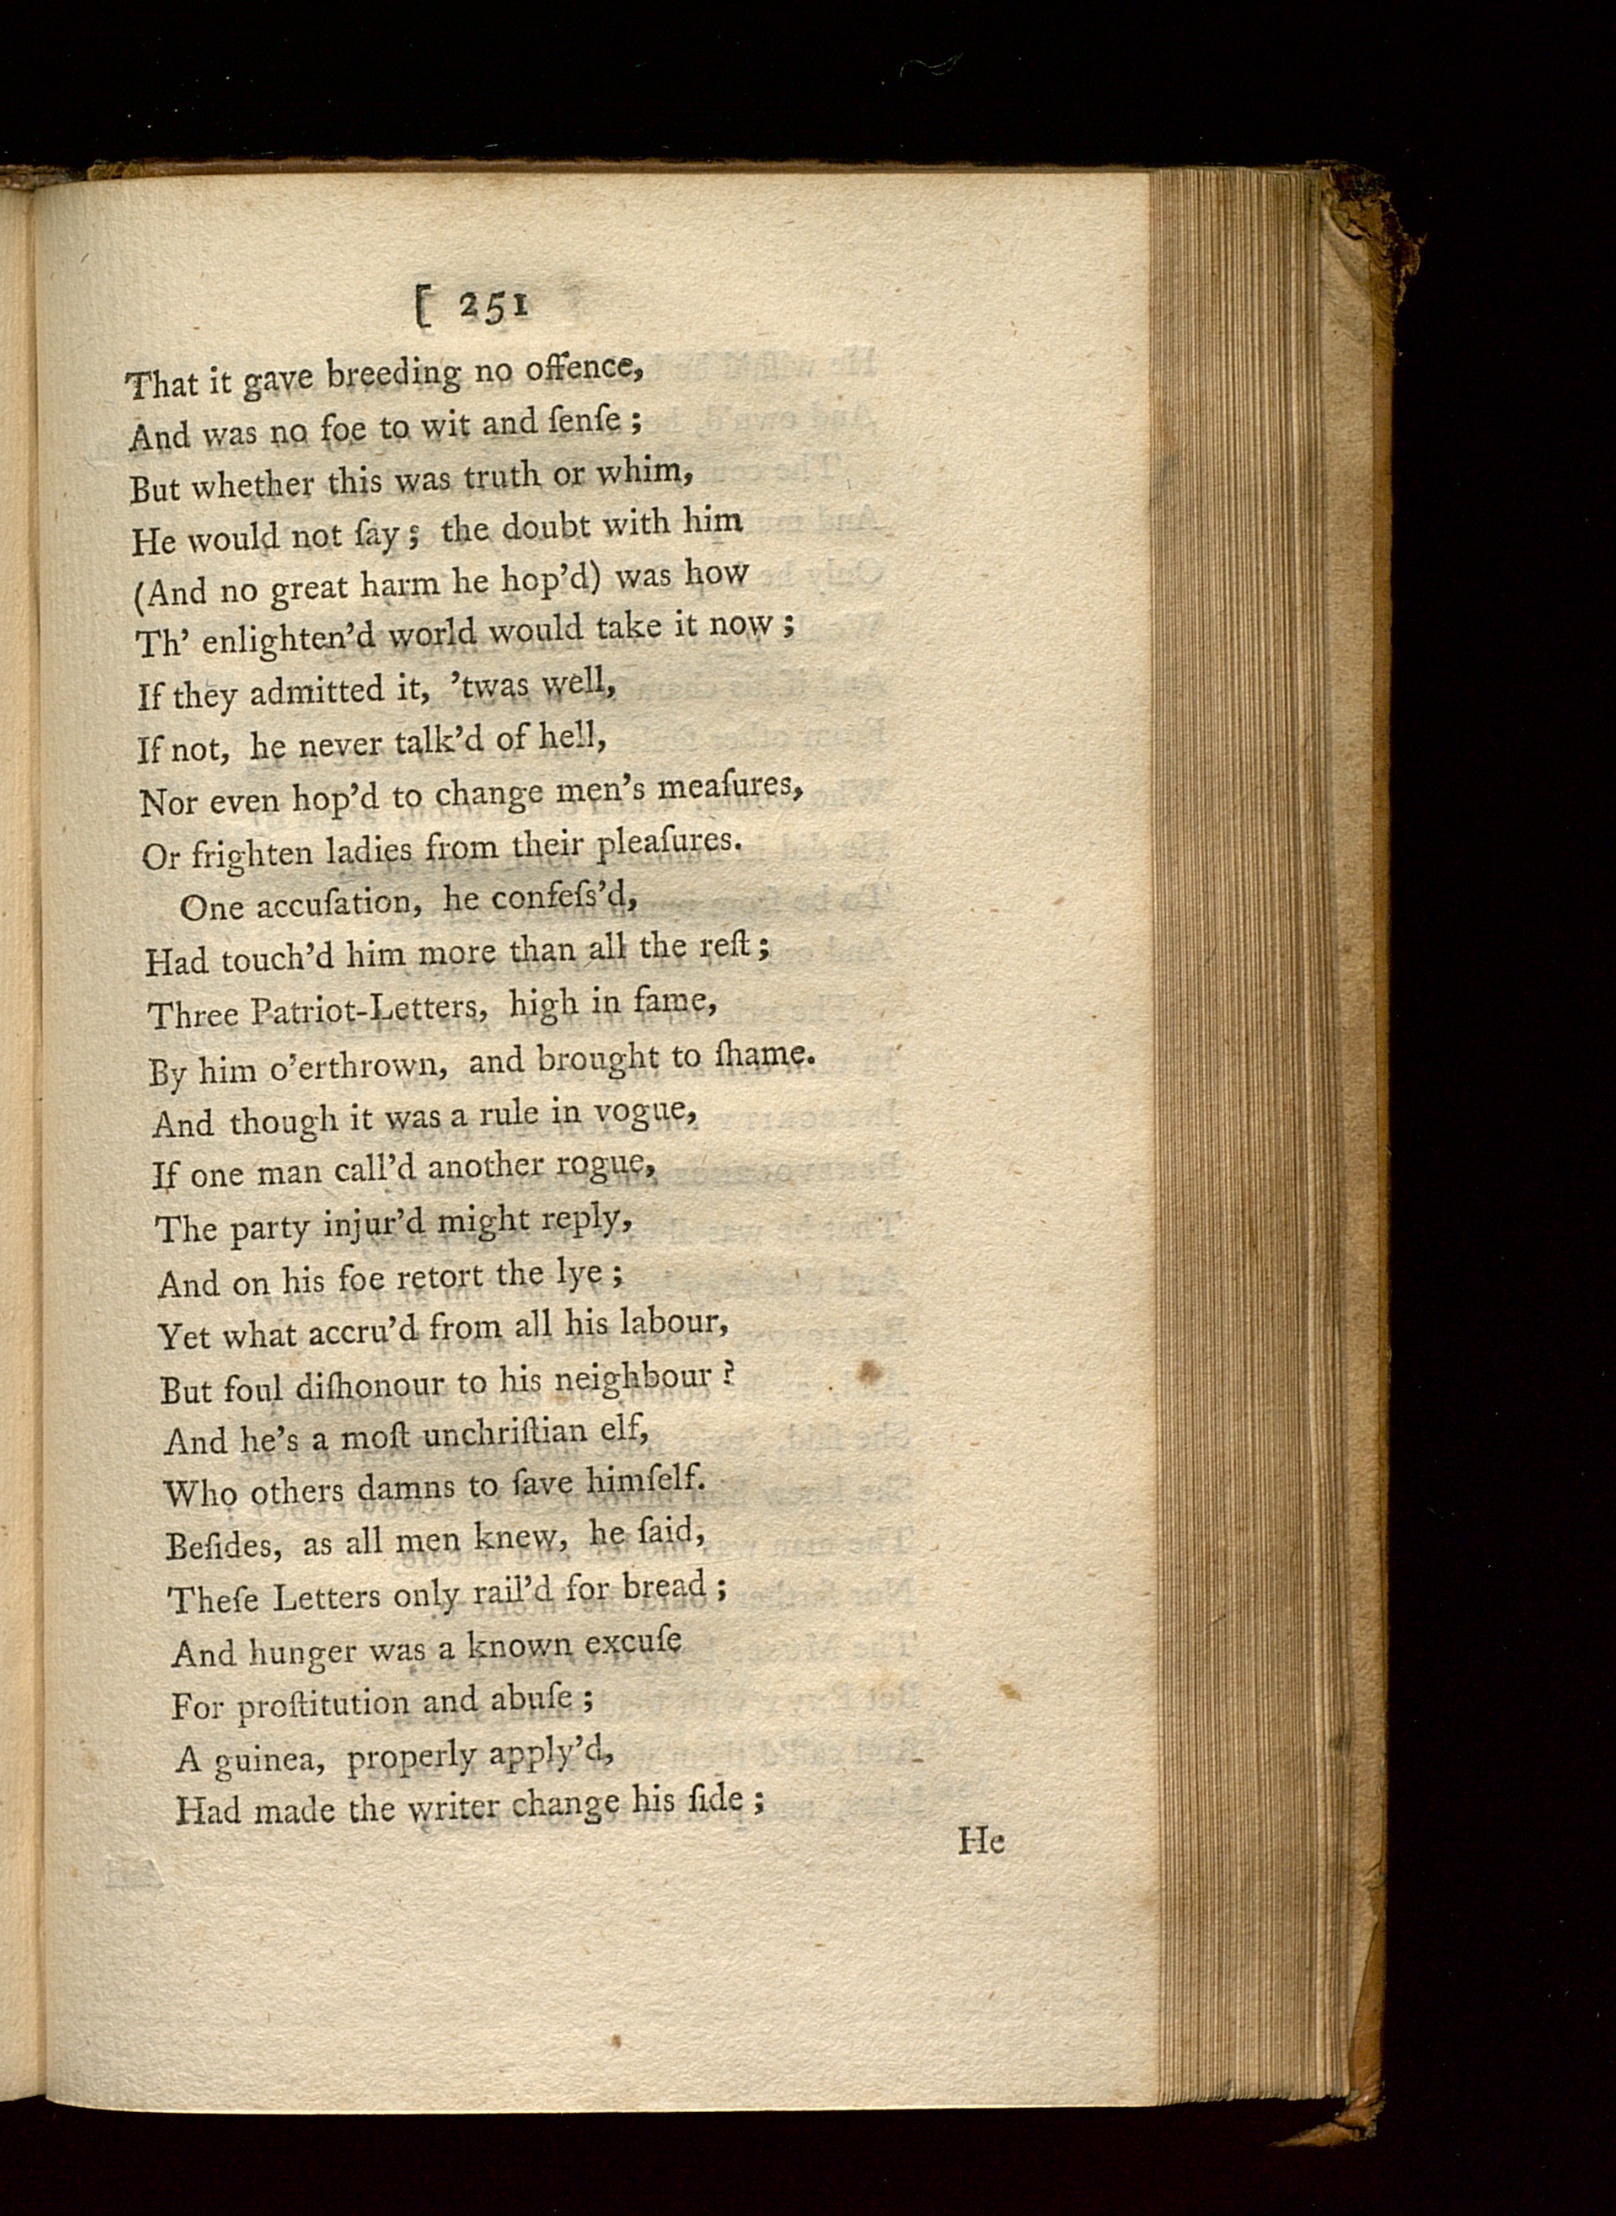 [ 251
That it gave breeding no offence,
And was no foe to wit and ſenſe ;
But whether this was truth or whim,
He would not ſay ; the doubt with him
(And no great harm he hop’d) was how
Th’ enlighten’d world would take it now ;
If they admitted it, ’twas well,
If not, he never talk’d of hell,
Nor even hop’d to change men’s meaſures,
Or frighten ladies from their pleaſures.
One accuſation, he confeſs’d,
Had touch’d him more than all the reſt ;
Three Patriot-Letters, high in fame,
By him o’erthrown, and brought to ſhame.
And though it was a rule in vogue,
If one man call’d another rogue,
The party injur’d might reply,
And on his foe retort the lye ;
Yet what accru’d from all his labour,
But foul diſhonour to his neighbour ?
And he’s a moſt unchriſtian elf,
Who others damns to ſave himſelf.
Beſides, as all men knew, he ſaid,
Theſe Letters only rail’d for bread ;
And hunger was a known excuſe
For proſtitution and abuſe ;
A guinea, properly apply’d,
Had made the writer change his ſide ;
He